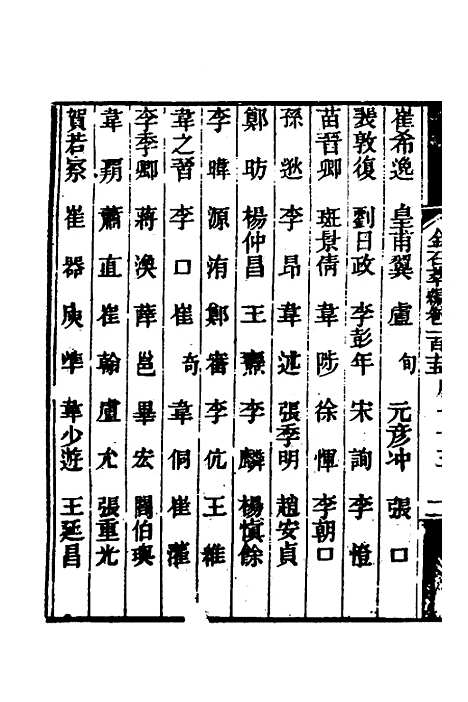 崔希逸 皇甫翼 盧 旬 元彥冲 張 口
裴敦復 劉日政 李彭年 宋 詢 李 憕
苗晉卿 班景倩 韋 陟 徐 惲 李朝口
孫 逖 李 昂 韋 述 張季明 趙安貞
鄭 昉 楊仲昌 王 燾 李 麟 楊慎餘
李 暐 源 洧 鄭 審 李 伉 王 維
韋之晉 李 口 崔 奇 韋 侗 崔 灌
李季卿 蔣 渙 薛 邕 畢 宏 閻伯璵
韋 蕭 直 崔 翰 盧 允 張重光
賀若察 崔 器 庾 準 韋少遊 王延昌
金石萃編卷一百 十三